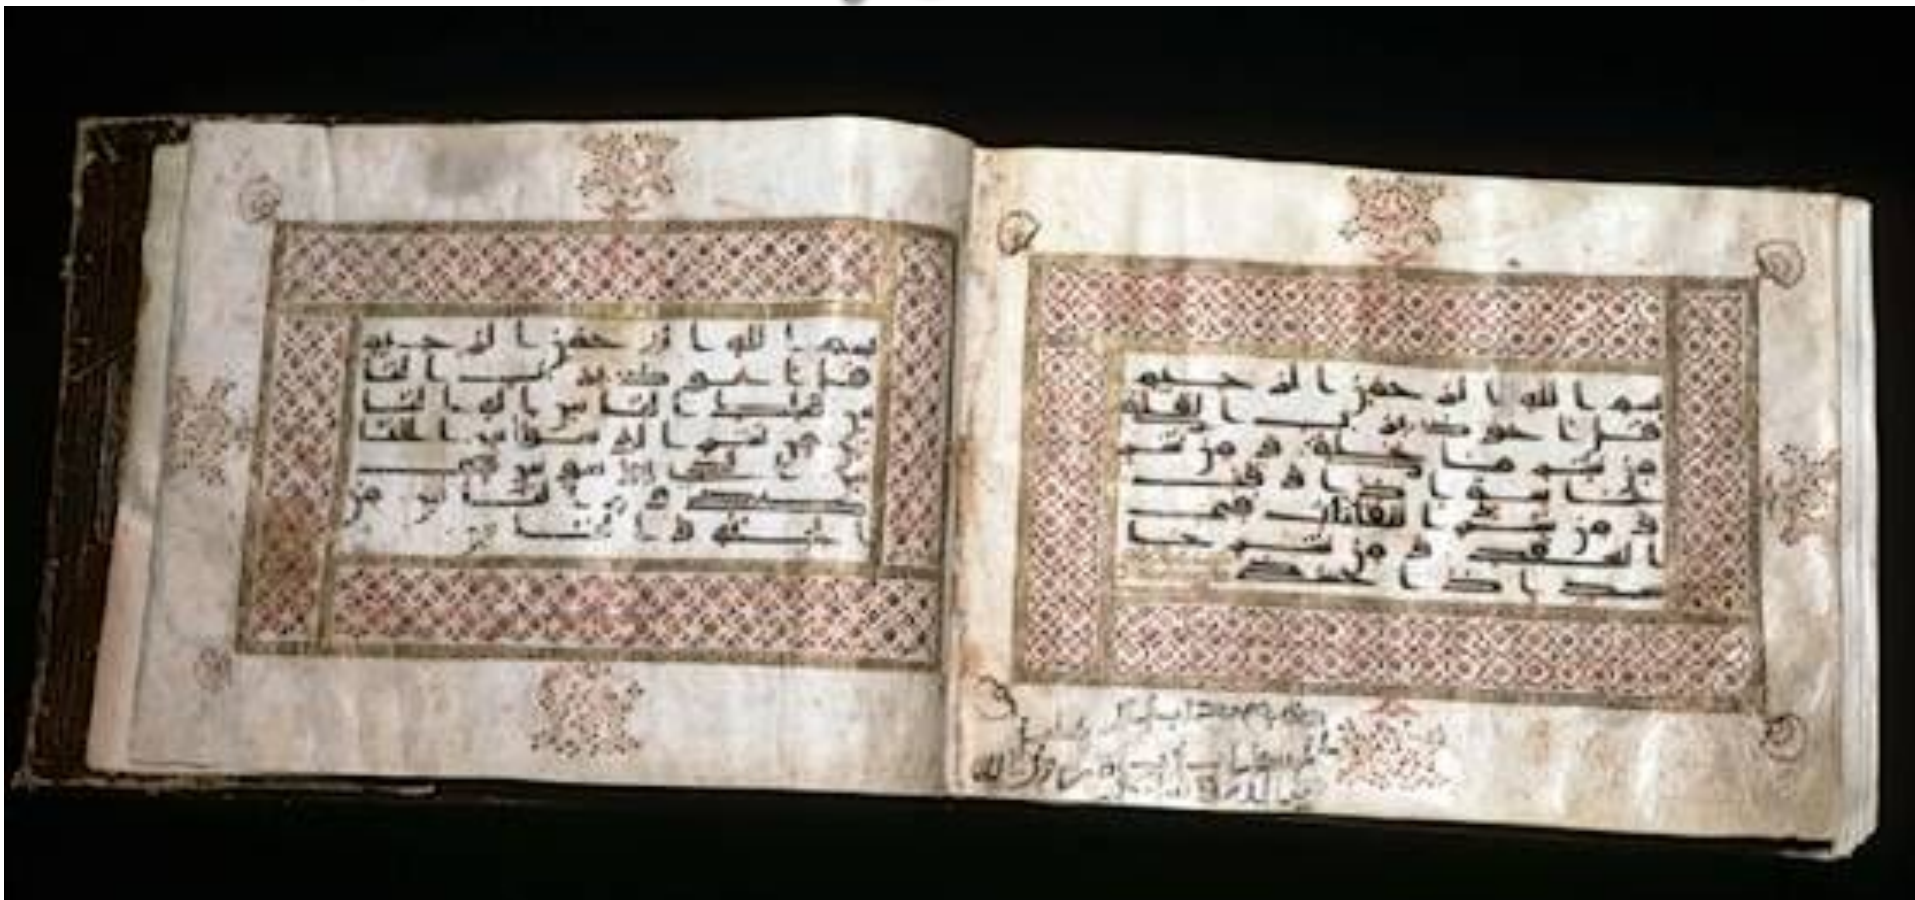 بسم الله الرحمن الرحيم
قل اعوذ برب الفلق
من شر ما خلق و من شر
غاسق اذا وقب
و من شر النفثات في
العقد و من شر حا
سد اذا حسد
بسم الله الرحمن الرحيم
قل اعوذ برب النا
س ملك الناس اله النا
س من شر الوسواس الخنا
س الذي يوسوس في
صدور الناس من
الجنة و الناس